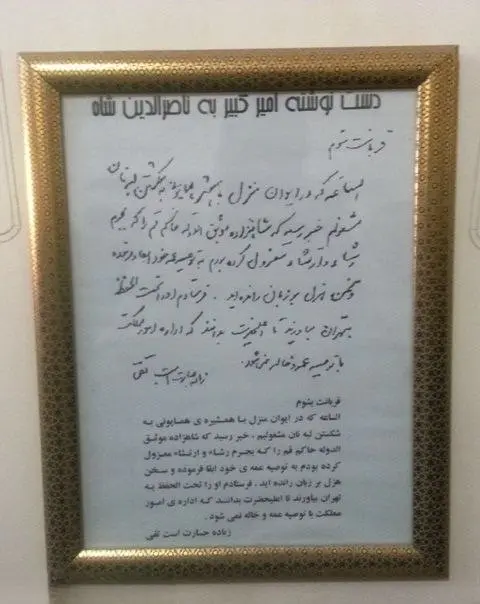 دست نوشته امیر کبیر به ناصرالدین شاه
قربانت شوم
الساعه که در ایوان منزل با همشیره همایونی به شکستن لبه نان
مشغولم خبر رسید که شاهزاده موثق الدوله حاکم قم را که بجرم
رشاء و ارتشاء معزول کرده بودم به توصیه عمه خود ابقا فرموده
و سخن هزل بر زبان رانده اید. فرستادم او را تحت الحفظ
بتهران بیاورند تا اعلیحضرت بدانند که اداره امور مملکت
با توصیه عمه و خاله نمی شود.
زیاده جسارت است تقی
قربانت بشوم
الساعه که در ایوان منزل با همشیره ی همایونی به
شکستن لبه نان مشغولیم ، خبر رسید که شاهزاده موثق
الدوله حاکم قم را که بجرم رشاء و ارتشاء معزول
کرده بودم به توصیه عمه ی خود ابقا فرموده و سخن
هزل بر زبان رانده اید ، فرستادم او را تحت الحفظ به
تهران بیاورند تا اعلیحضرت بدانند که اداره ی امور
مملکت با توصیه عمه و خاله نمی شود .
زیاده جسارت است تقی